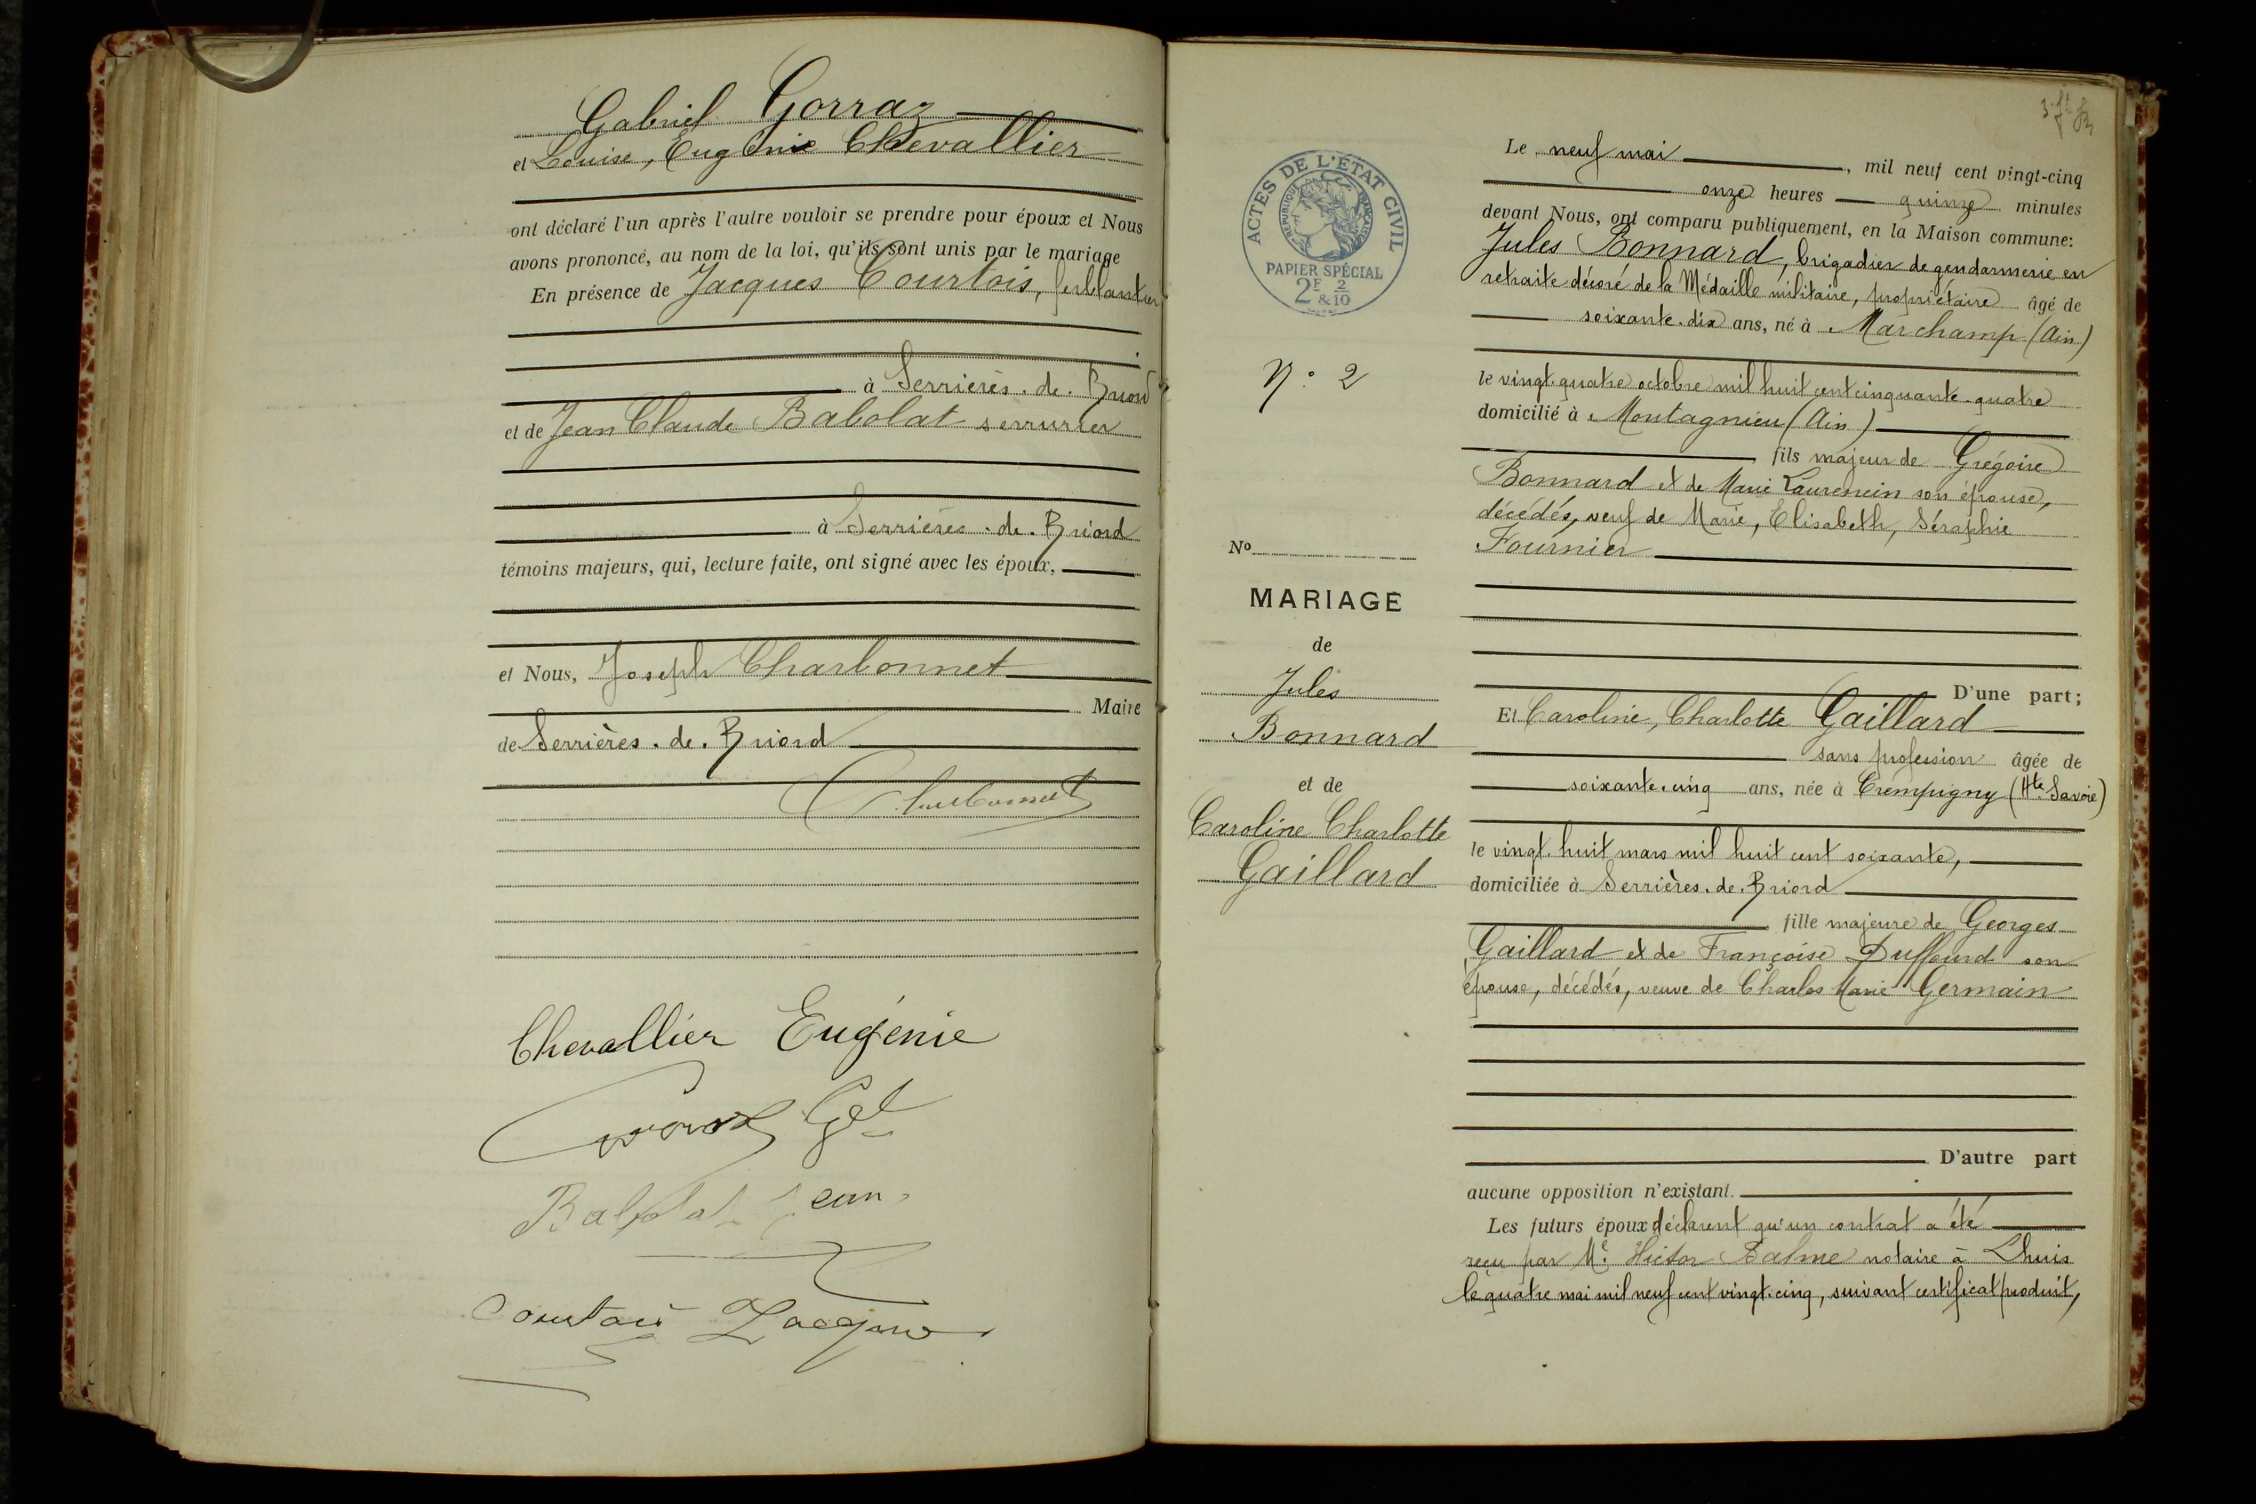 Gabriel Gorraz
et Louise, Eugénie Chevallier
ont déclaré l'un après l'autre vouloir se prendre pour époux et Nous
avons prononcé, au nom de la loi, qu'ils sont unis par le mariage
En présence de Jacques Courtois, ferblantier
à Serrières-de-Briord
et de Jean Claude Babolat serrurier
à Serrières-de-Briord
témoins majeurs, qui, lecture faite, ont signé avec les époux,
et Nous, Joseph Charbonnet
Maire
de Serrières-de-Briord
Charbonnet
Chevallier Eugénie
Gorraz Gel
Babolat Jean
Courtois Jacques
ACTES DE L'ÉTAT CIVIL
RÉPUBLIQUE FRANÇAISE
PAPIER SPÉCIAL
2F 2
& 10
N° 2
N°
MARIAGE
de
Jules
Bonnard
et de
Caroline Charlotte
Gaillard
Le neuf mai, mil neuf cent vingt-cinq
onze heures quinze minutes
devant Nous, ont comparu publiquement, en la Maison commune:
Jules Bonnard, brigadier de gendarmerie en
retraite décoré de la Médaille militaire, propriétaire âgé de
soixante-dix ans, né à Marchamp (Ain)
le vingt-quatre octobre mil huit cent cinquante-quatre
domicilié à Montagnieu (Ain)
fils majeur de Grégoire
Bonnard et de Marie Laurencin son épouse,
décédés, veuf de Marie, Elisabeth, Séraphie
Fournier
D'une part;
Et Caroline, Charlotte Gaillard
sans profession âgée de
soixante-cinq ans, née à Crempigny (Hte Savoie)
le vingt-huit mars mil huit cent soixante,
domiciliée à Serrières-de-Briord
fille majeure de Georges
Gaillard et de Françoise Duffourd son
épouse, décédés, veuve de Charles Marie Germain
D'autre part
aucune opposition n'existant.
Les futurs époux déclarent qu'un contrat a été
reçu par Me Hictor Balme notaire à Lhuis
le quatre mai mil neuf cent vingt-cinq, suivant certificat produit,